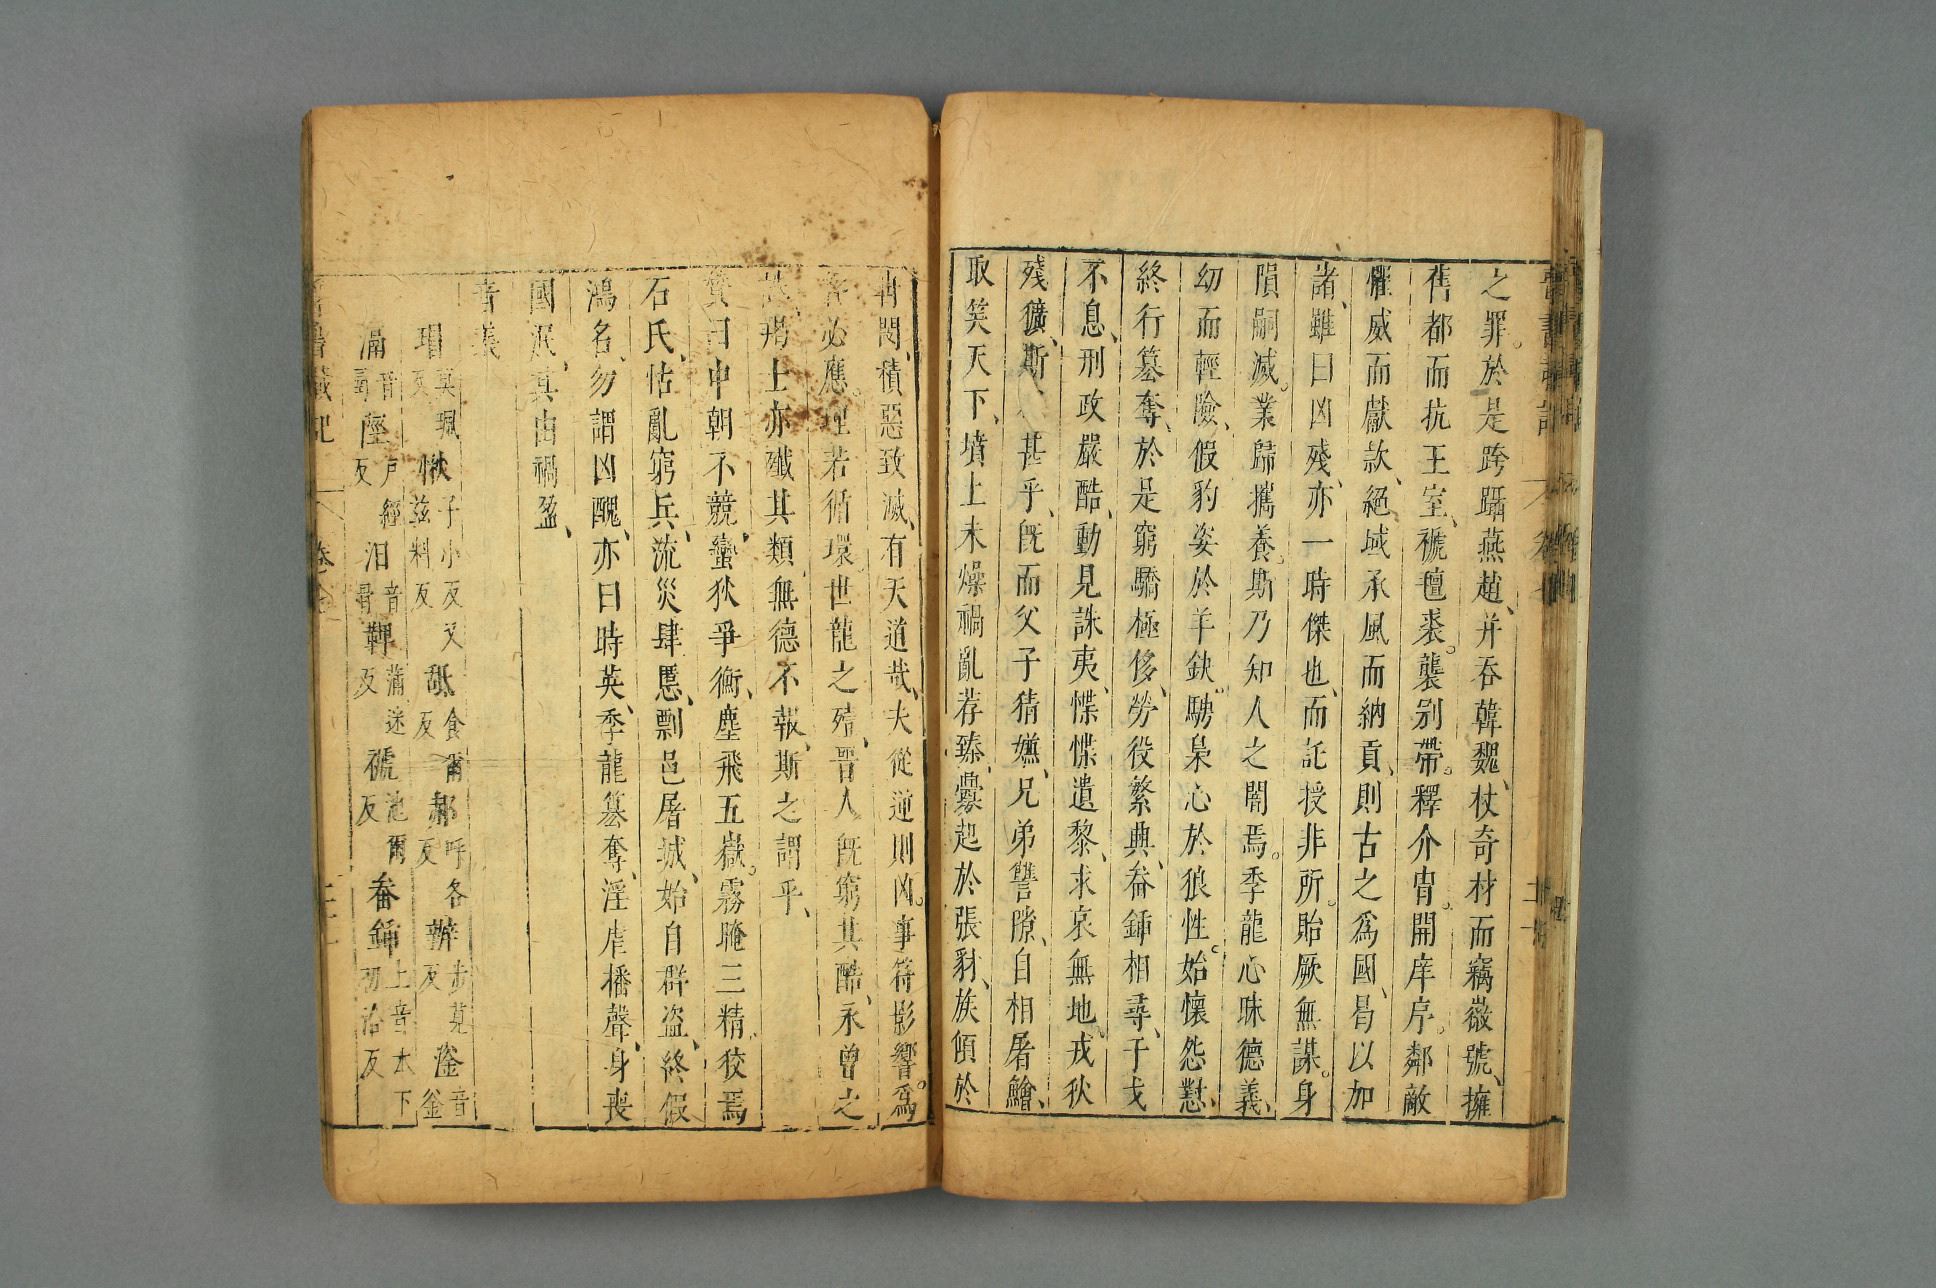 之罪於是跨躡燕趙并吞韓魏杖奇材而竊徽號擁
舊都而抗王室褫氊裘襲冠帶釋介胄開庠序鄰敵
懼威而獻款絕域承風而納貢則古之爲國曷以加
諸雖曰凶殘亦一時傑也而託授非所貽厥無謀身
隕嗣滅業歸攜養斯乃知人之闇焉季龍心昧德義
幼而輕險假豹姿於羊鈌騁梟心於狼性始懷怨懟
終行篡奪於是窮驕極侈勞役繁興畚鍤相尋干戈
不息刑政嚴酷動見誅夷惵惵遺黎求哀無地戎狄
殘獷斯 甚乎既而父子猜嫌兄弟讐隙自相屠鱠
取笑天下墳土未燥禍亂荐臻釁起於張豺族傾於
冉閔積惡致滅有天道哉夫從逆則凶事符影響爲
咎必應理若循環世龍之殪晉人既窮其酷永曾之
誅羯士亦殲其類無德不報斯之謂乎
贊曰中朝不競蠻狄爭衡塵飛五嶽霧晻三精狡焉
石氏怙亂窮兵流災肆慝剽邑屠城始自群盜終假
鴻名勿謂凶醜亦曰時英季龍篡奪淫虐播聲身喪
國泯其由禍盈
音義
瑁莫珮反 愀子小反又茲料反 舐食爾反 郝呼各反 瓣步莧反 滏音釜
滆音鬲 陘戶經反 汨音骨 鞞蒲迷反 褫池爾反 畚鍤上音本下初洽反